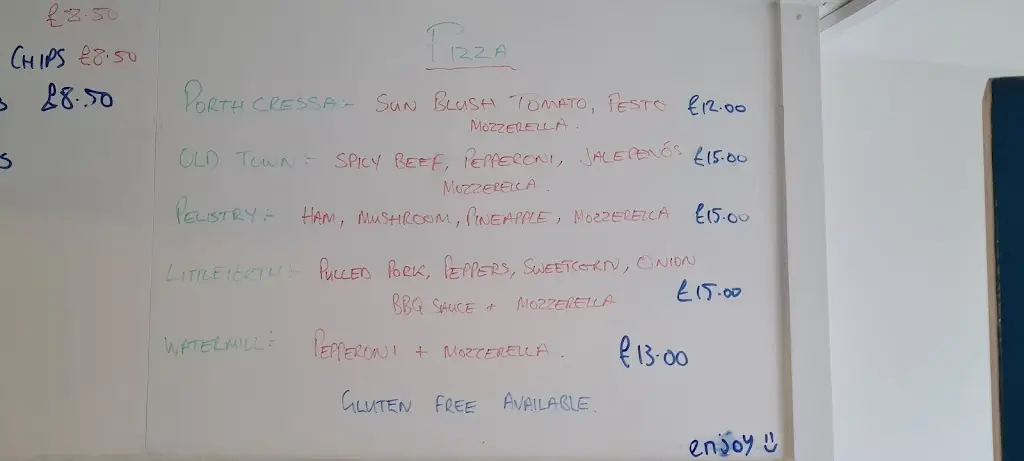 £8.50
CHIPS £8.50
£8.50
S
PIZZA
PORTH CRESSA:- SUN BLUSH TOMATO, PESTO £12.00
MOZZERELLA.
OLD TOWN:- SPICY BEEF, PEPPERONI, JALEPENÓS £15.00
MOZZERELLA.
PELISTRY:- HAM, MUSHROOM, PINEAPPLE, MOZZERELLA £15.00
PULLED PORK, PEPPERS, SWEETCORN, ONION
BBQ SAUCE + MOZZERELLA £15.00
WATERMILL:- PEPPERONI + MOZZERELLA. £13.00
GLUTEN FREE AVAILABLE.
enjoy